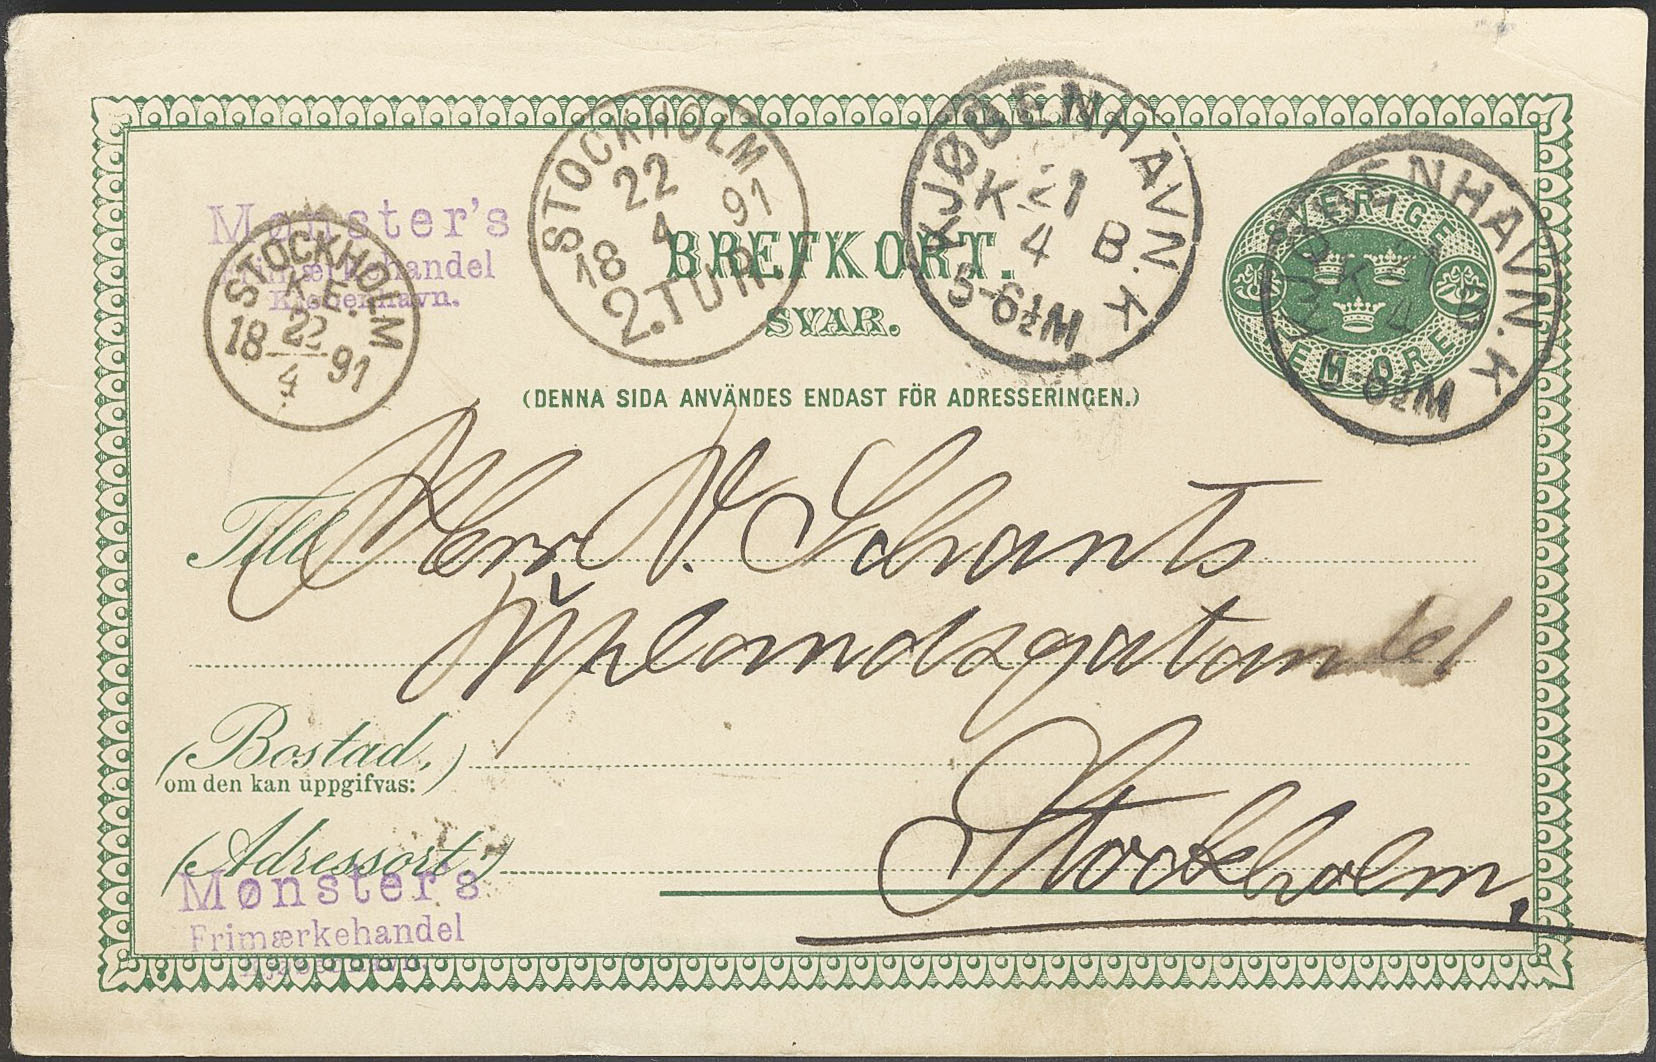 Mønster's
Frimærkehandel
Kjøbenhavn.
STOCKHOLM
K.E.
22
18 91
4
STOCKHOLM
22
18 4 91
2.TUR
KJØBENHAVN. K
K 21 B.
4
5-6½M
KJØBENHAVN. K
K
4
6½M
SVERIGE
FEM ÖRE
BREFKORT.
SVAR.
(DENNA SIDA ANVÄNDES ENDAST FÖR ADRESSERINGEN.)
Till Herr V. Schants
Uplandsgatan
(Bostad,)
om den kan uppgifvas:
(Adressort:) Stockholm,
Mønster's
Frimærkehandel
Kjøbenhavn.